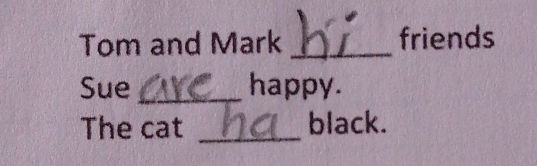 Tom and Mark hi friends
Sue are happy.
The cat ha black.